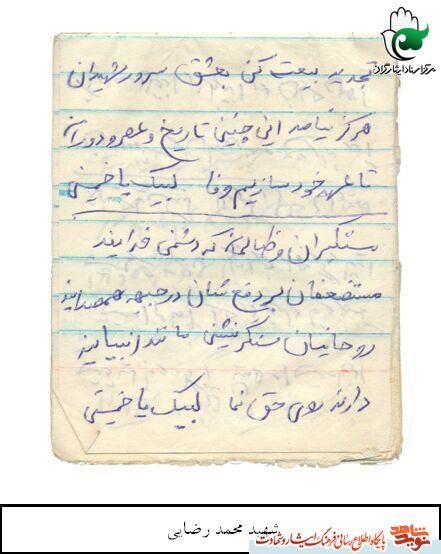 مرکز اسناد ایثارگران
تجدید بیعت کن بعشق سرور شهیدان
هرگز نیامد این چنین تاریخ و عصر و دوران
تا عهد خود سازیم وفا لبیک یا خمینی
ستمگران و ظالمان که دشمن خدایند
مستضعفان بر دفعشان در جبهه همصدایند
روحانیان سنگر نشین مانند انبیایند
دارند لوای حق نما لبیک یا خمینی
شهید محمد رضایی
نوید شاهد
پایگاه اطلاع رسانی فرهنگ ایثار و شهادت